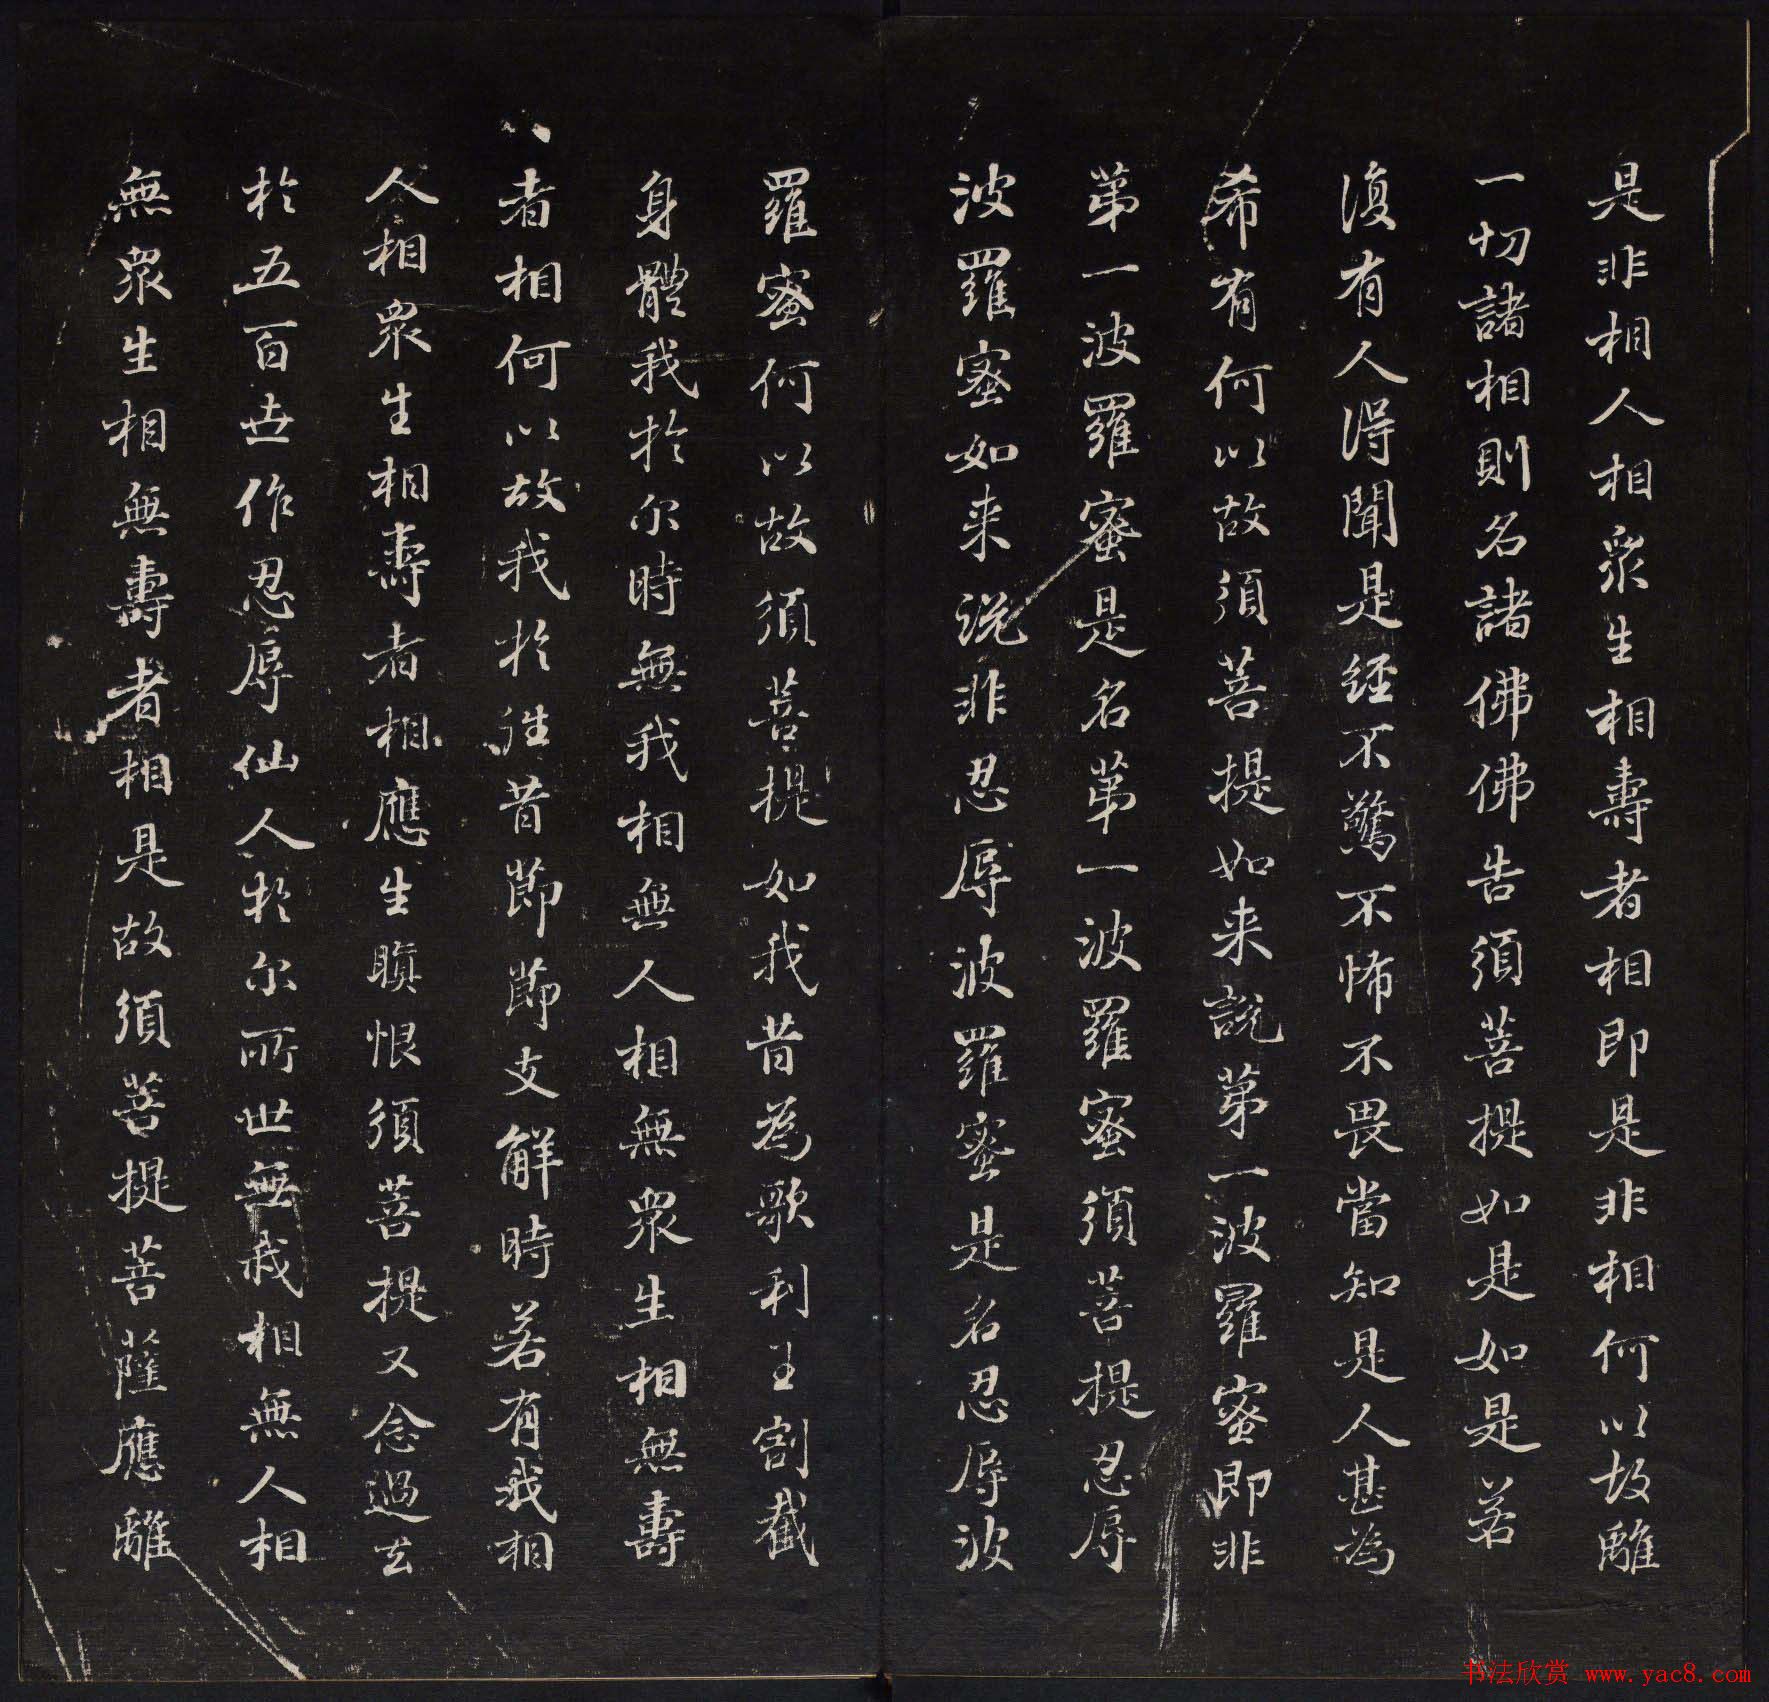 是非相人相眾生相壽者相即是非相何以故離
一切諸相則名諸佛佛告須菩提如是如是若
復有人得聞是經不驚不怖不畏當知是人甚為
希有何以故須菩提如来說第一波羅蜜即非
第一波羅蜜是名第一波羅蜜須菩提忍辱
波羅蜜如来說非忍辱波羅蜜是名忍辱波
羅蜜何以故須菩提如我昔為歌利王割截
身體我於尔時無我相無人相無眾生相無壽
者相何以故我於往昔節節支解時若有我相
人相眾生相壽者相應生瞋恨須菩提又念過去
於五百世作忍辱仙人於尔所世無我相無人相
無眾生相無壽者相是故須菩提菩薩應離
书法欣赏 www.yac8.com